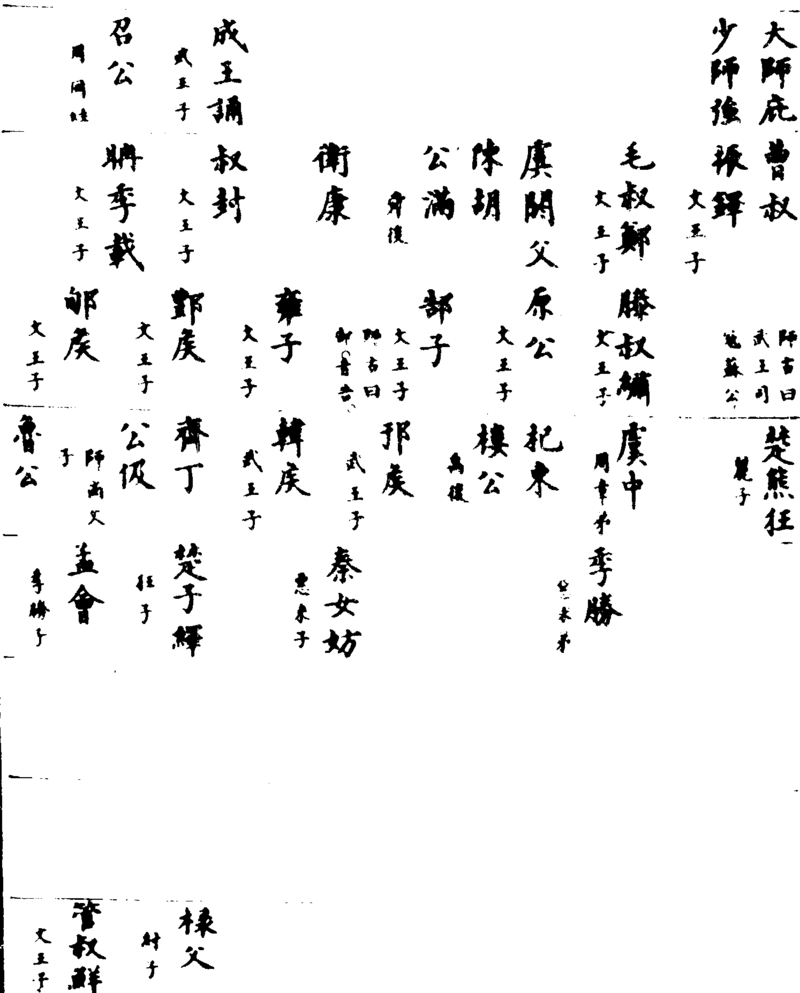 大師庇
少師強
成王誦
武王子
召公
周同姓
曹叔
振鐸
文王子
毛叔鄭
文王子
虞閼父
陳胡
公滿
舜後
衛康
叔封
文王子
聃季載
文王子
師古曰
武王司
寇蘇公
滕叔繡
文王子
原公
文王子
郜子
文王子
師古曰
郜音告
雍子
文王子
酆侯
文王子
郇侯
文王子
楚熊狂
麗子
虞中
周章弟
杞東
樓公
禹後
邘侯
武王子
韓侯
武王子
齊丁
公伋
師尚父
子
魯公
季勝
惡來弟
秦女妨
惡來子
楚子繹
狂子
孟會
季勝子
祿父
紂子
管叔鮮
文王子